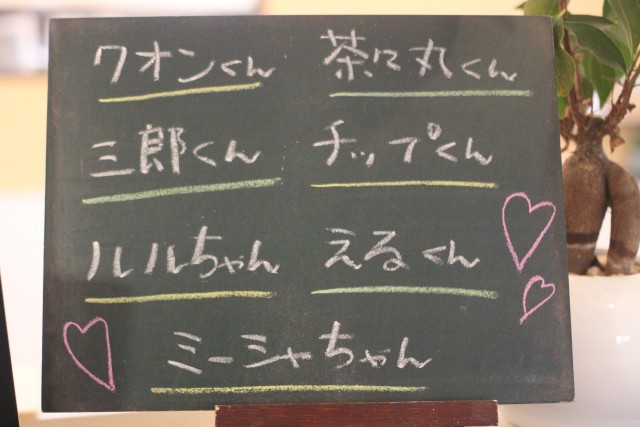 クオンくん 茶々丸くん
三郎くん チップくん
ルルちゃん えるくん
ミーシャちゃん